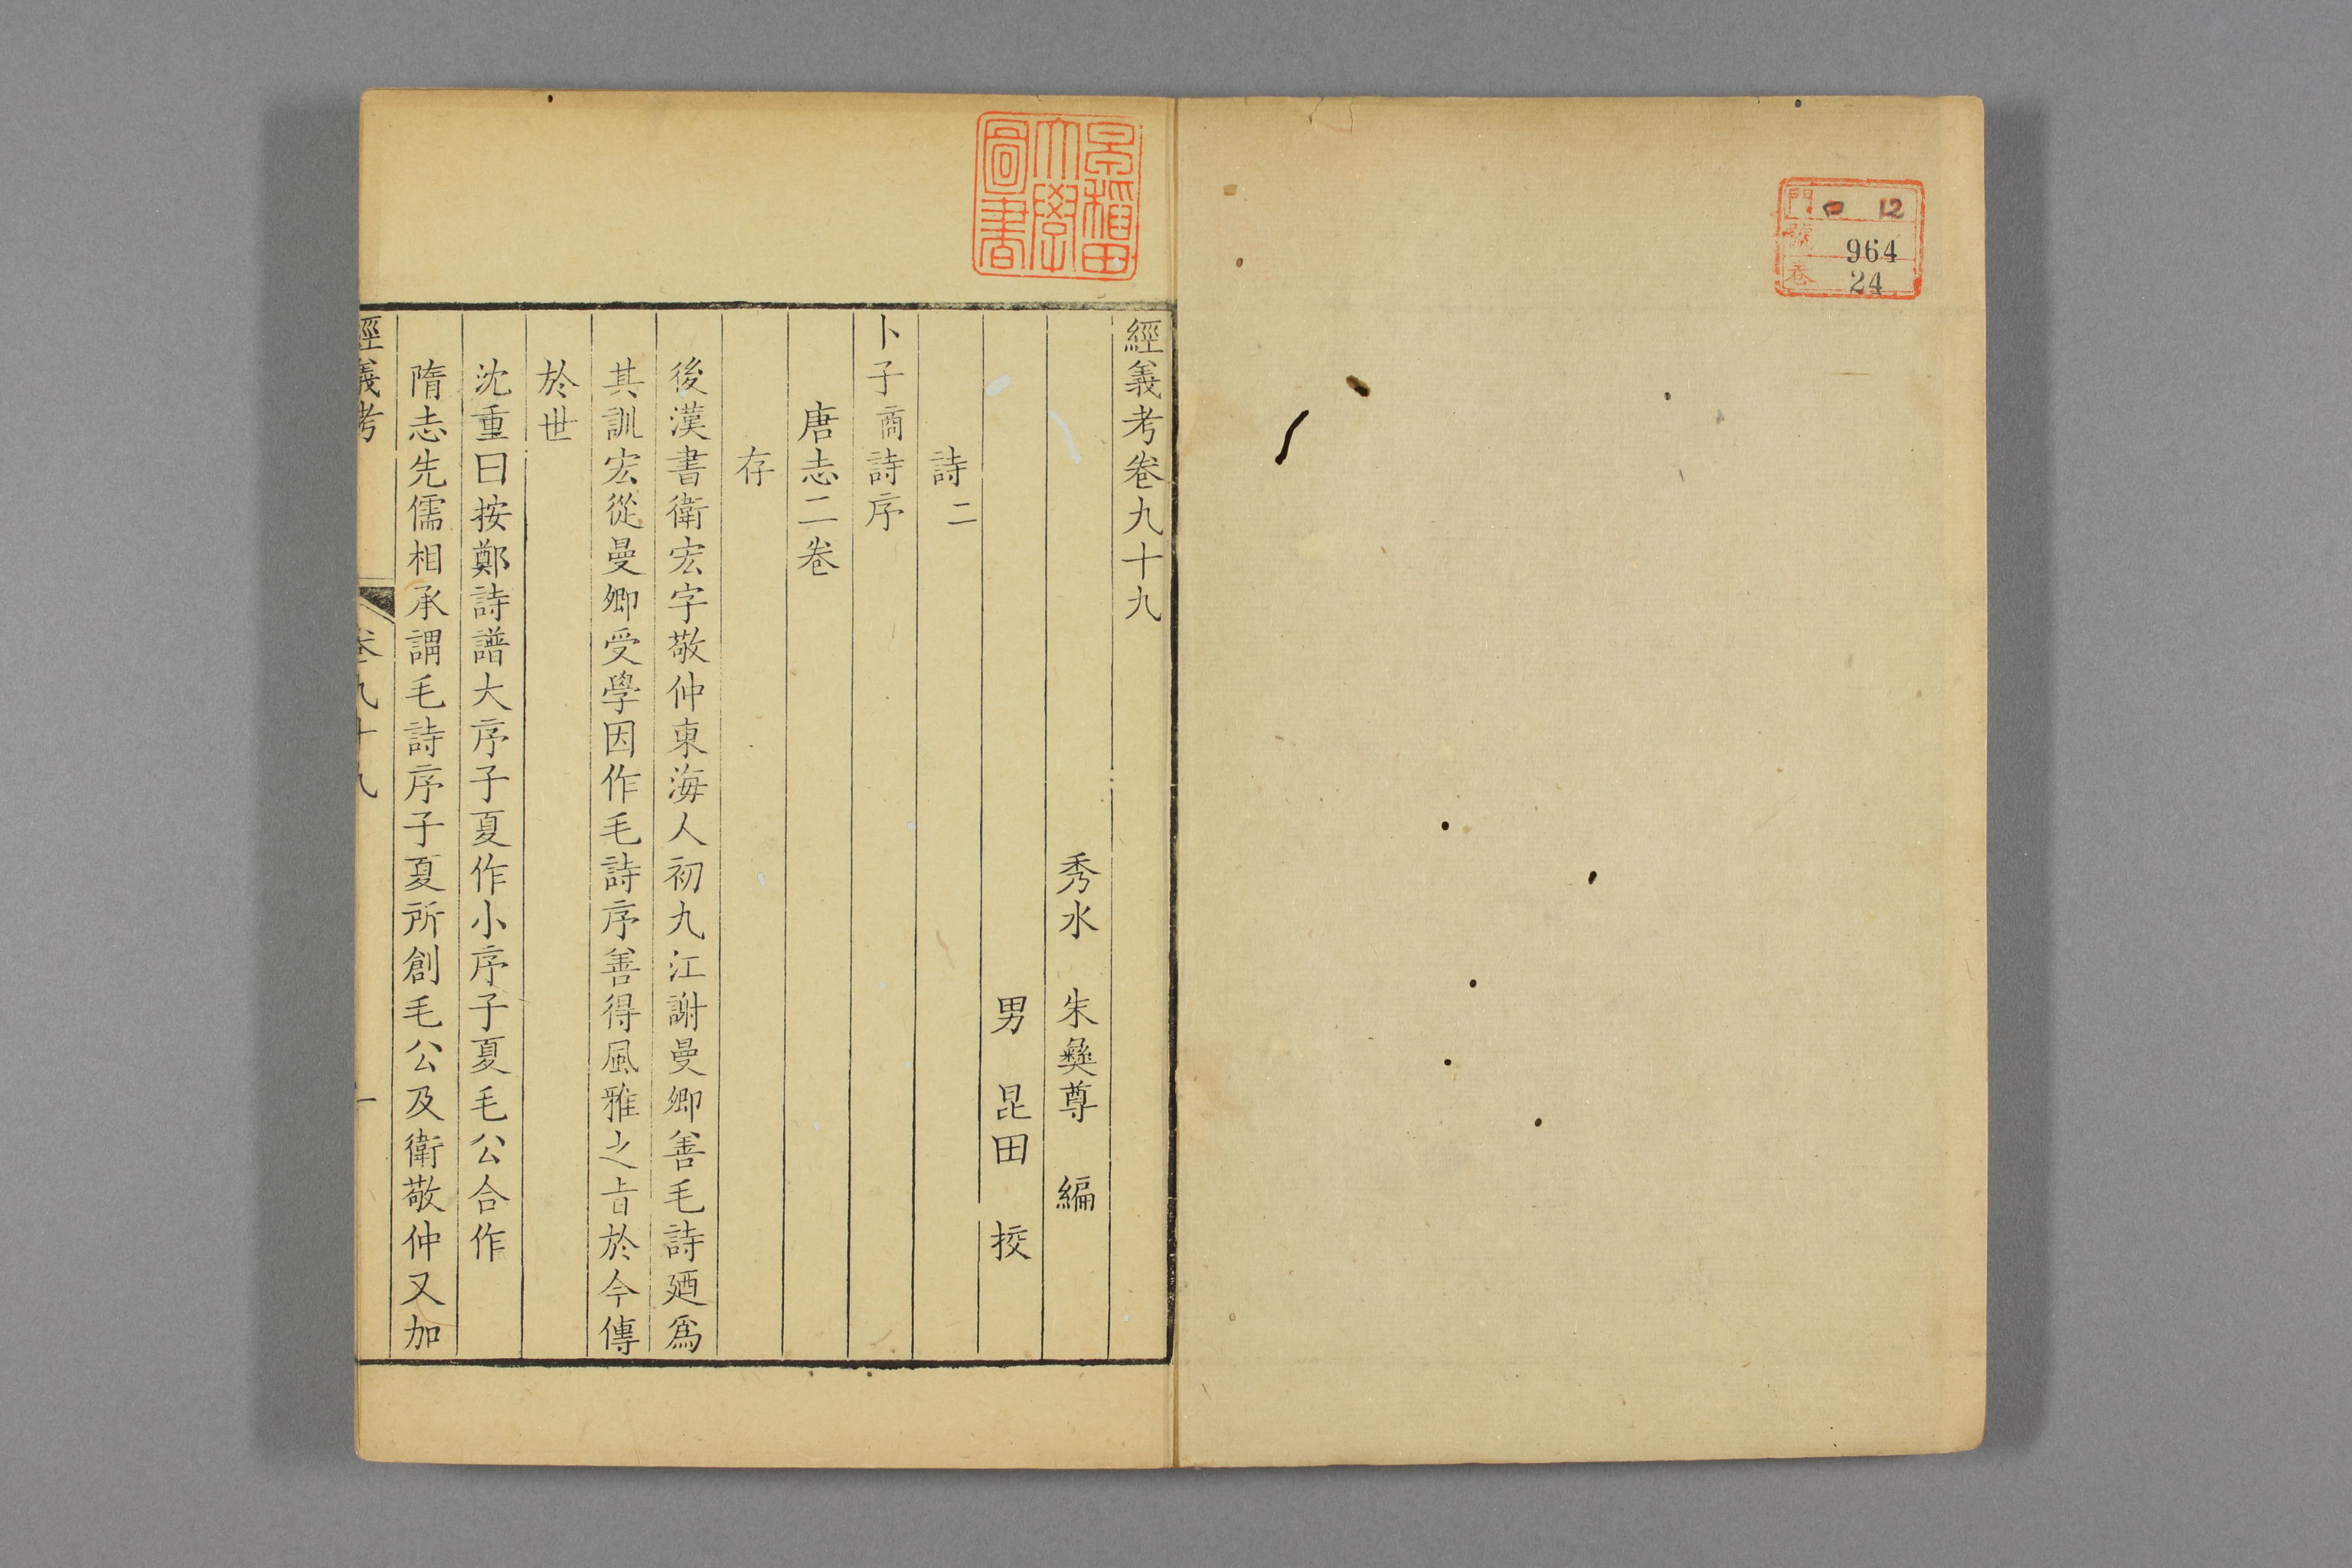 門 ロ 12
號 964
卷 24
早稲田
大學
圖書
經義考卷九十九
秀水 朱彝尊 編
男 昆田 挍
詩二
卜子商詩序
唐志二卷
存
後漢書衛宏字敬仲東海人初九江謝曼卿善毛詩廼爲
其訓宏從曼卿受學因作毛詩序善得風雅之旨於今傳
於世
沈重曰按鄭詩譜大序子夏作小序子夏毛公合作
隋志先儒相承謂毛詩序子夏所創毛公及衛敬仲又加
經義考 卷九十九 一